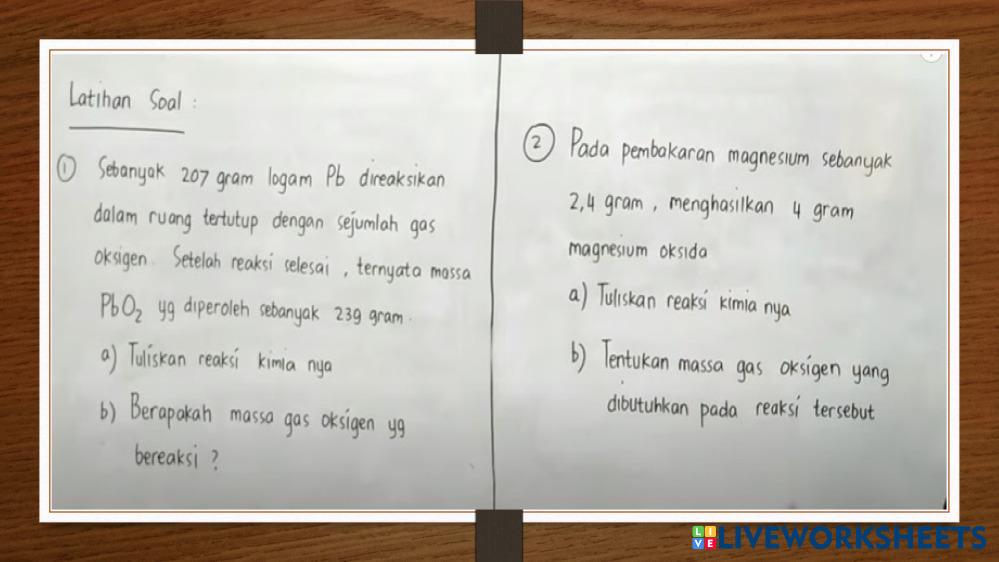 Latihan Soal :
① Sebanyak 207 gram logam Pb direaksikan
dalam ruang tertutup dengan sejumlah gas
oksigen. Setelah reaksi selesai, ternyata massa
PbO₂ yg diperoleh sebanyak 239 gram.
a) Tuliskan reaksi kimia nya
b) Berapakah massa gas oksigen yg
bereaksi ?
② Pada pembakaran magnesium sebanyak
2,4 gram, menghasilkan 4 gram
magnesium oksida
a) Tuliskan reaksi kimia nya
b) Tentukan massa gas oksigen yang
dibutuhkan pada reaksi tersebut
LIVE LIVEWORKSHEETS